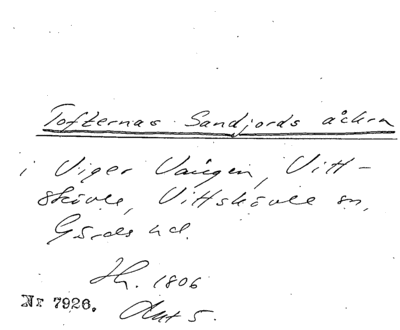 Tofternas Sandjords åckra
i Viger Vången, Vitt-
skövle, Vittskövle sn,
Gärds hd.
Sh. 1806
Akt 5.
Nr 7926.